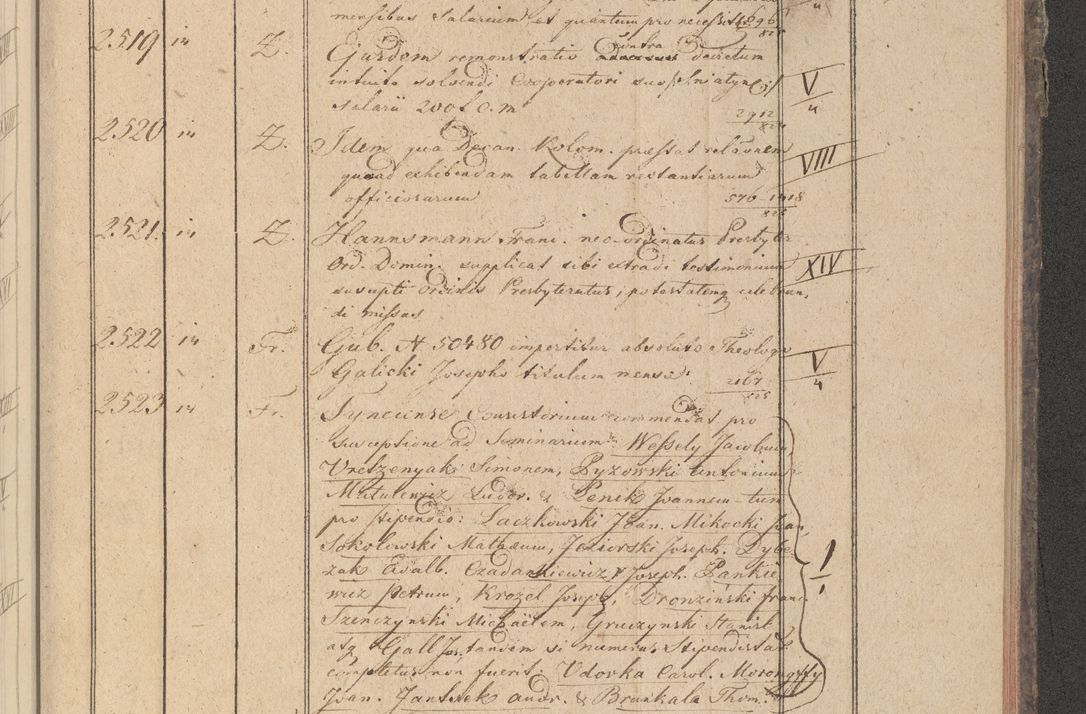 mensibus Salarium et quantum pro necessit 1696/825
2519 14 Z. Ejusdem remonstratio contra decretum
intuitu solvendi Cooperatori suo Sniatyn V/4
salarii 200 f C. m 2912/824
2520 14 Z. Idem qua Decan. Kolom. præstat relaõnem VIII
quoad exhibendam tabellam restantiarum
officiosarum 576-1418/825
2521. 14 Z. Hannsmann Franc. neo-ordinatus Presbyter
Ord. Domin. supplicat sibi extradi testimonium XIV
suscepti Ordinis Presbyteratus, potestatemq celebran,
di missas
2522 14 Fr. Gub. N 50480 impertitur absoluto Theologo V/4
Galicki Josepho titulum mensæ. 2167/825
2523 14 Fr. Tynecense Consistorium commendat pro
susceptione ad Seminarium Wessely Jacobum,
Vretzenyak Simonem, Pyzowski Antonium
Matulewicz Ludov. & Penik Joannem - tum
pro stipendio: Laczkowski Joan. Mikocki Joan,
Sokolowski Mathæum, Jeziorski Joseph. Dybe
zak Adalb. Czadankiewicz Joseph. Pankie 1/1
wicz Petrum, Krozel Joseph, Dronzinski franc.
Tzenczynski Michaëlem, Gruczynski Stanisl
atq Gall Jos. tandem si numerus Stipendistar.
completus non fuerit: Vdorka Carol. Morongffy
Joan. Jantsek Andr. & Brankala Thom.